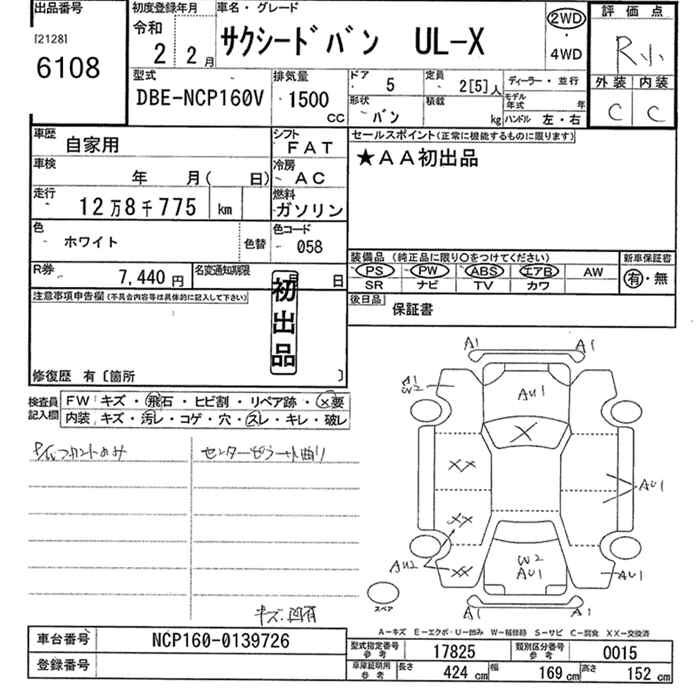 出品番号
[2128]
6108
初度登録年月
令和
2 2月
車名・グレード
サクシードバン UL-X
2WD
・
4WD
評価点
R小
外装 内装
C C
型式
DBE-NCP160V
排気量
1500
CC
ドア 5
定員 2[5]人
ディーラー・並行
形状 バン
積載 kg
モデル年式 年
ハンドル 左・右
車歴 自家用
シフト FAT
車検 年 月( 日)
冷房 AC
走行 12万8千775 km
燃料 ガソリン
色 ホワイト
色替
色コード 058
R券 7,440円
名変通知期限 月 日
セールスポイント(正常に機能するものに限ります)
★AA初出品
装備品 (純正品に限り○をつけてください)
新車保証書
PS PW ABS エアB AW
有・無
SR ナビ TV カワ
後日品 保証書
注意事項申告欄(不具合内容等は具体的に記入して下さい)
初出品
修復歴 有〔箇所 〕
検査員記入欄
FW キズ・飛石・ヒビ割・リペア跡・×要
内装 キズ・汚レ・コゲ・穴・スレ・キレ・破レ
センターピラー 曲り
キズ・凹有
A1 A1
A1
W2
AU1
X
XX
XX
AU1
AU2
XX
W2
AU1
AU1
A1 A1
スペア
A-キズ E-エクボ・U-凹み W-補修跡 S-サビ C-腐食 XX-交換済
車台番号 NCP160-0139726
登録番号
型式指定番号 参考 17825
類別区分番号 参考 0015
車庫証明用 参考
長さ 424cm 幅 169cm 高さ 152cm